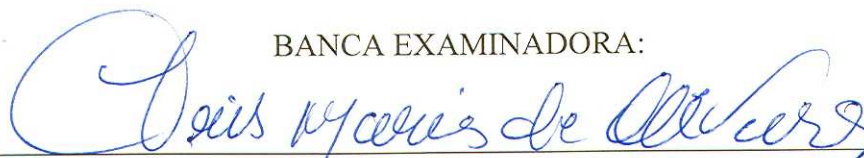 BANCA EXAMINADORA:
Maria de Oliveira